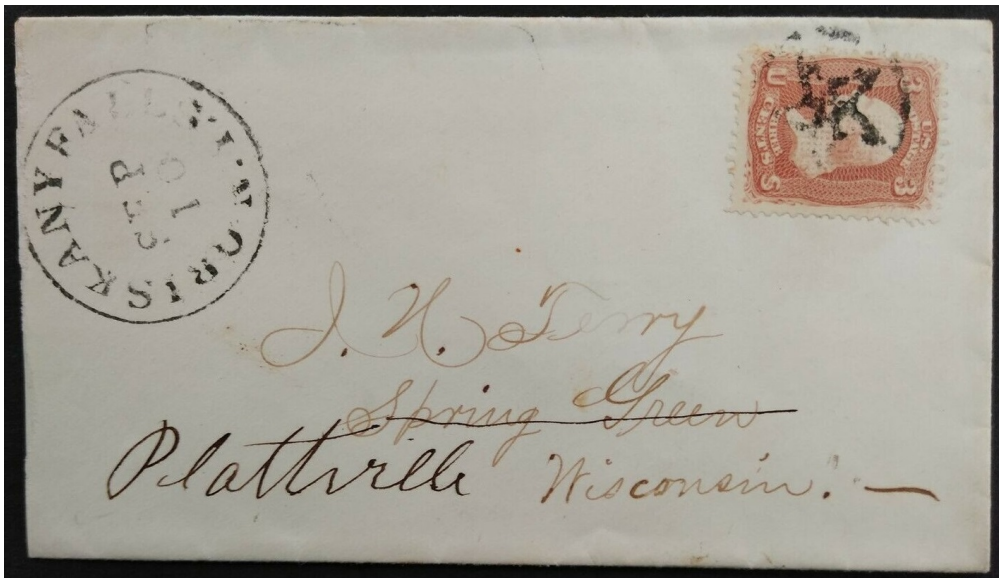 ORISKANY FALLS N.Y.
SEP
10
U 3
U.S. POSTAGE
THREE CENTS
S 3
J. H. Terry
Spring Green
Plattville Wisconsin.